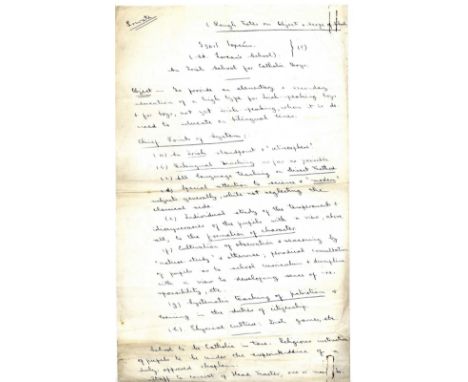 Private
(Rough Notes on Object & Scope of School
Sgoil Lorcáin } (1)
(St. Lorcan's School)
An Irish School for Catholic Boys
Object — To provide an elementary & secondary
education of a high type for Irish-speaking boys
& for boys, not yet Irish speaking, whom it is de-
sired to educate on bilingual lines.
Chief Points of System:
(a) An Irish standpoint & "atmosphere"
(b) Bilingual Teaching as far as possible
(c) All Language Teaching on Direct Method
(d) Special attention to science & "modern"
subjects generally, while not neglecting the
classical side
(e) Individual study of the temperaments &
idiosyncrasies of the pupils with a view, above
all, to the formation of character
(f) Cultivation of observation & reasoning by
"nature study" & otherwise; periodical consultation
of pupils as to school curriculum & discipline
with a view to developing sense of re-
sponsibility, etc.
(g) Systematic teaching of patriotism &
training in the duties of citizenship.
(h) Physical culture: Irish games, etc.
School to be Catholic in tone. Religious instruction
of pupils to be under the superintendence of a
duly appointed chaplain.
Staff to consist of Head Master, one or more